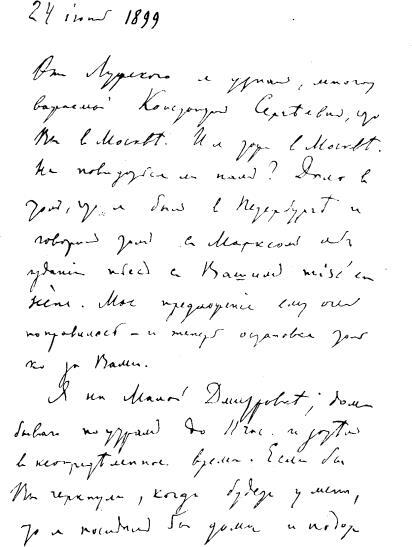 24 июня 1899
От Лужского я узнал, много
важаемый Константин Сергѣевич, что
Вы в Москвѣ. И я тоже в Москвѣ.
Не повидаться ли нам? Дело в
том, что я был в Петербургѣ и
говорил там с Марксом об
изданiи пьес с Вашими misé en
scène. Мое предложенiе ему очень
понравилось – и теперь остановка толь
ко за Вами.
Я на Малой Дмитровкѣ; дома
бываю по утрам до 11 час. и потом
в неопредѣленное время. Если бы
Вы черкнули, когда будете у меня,
то я посидел бы дома и подож